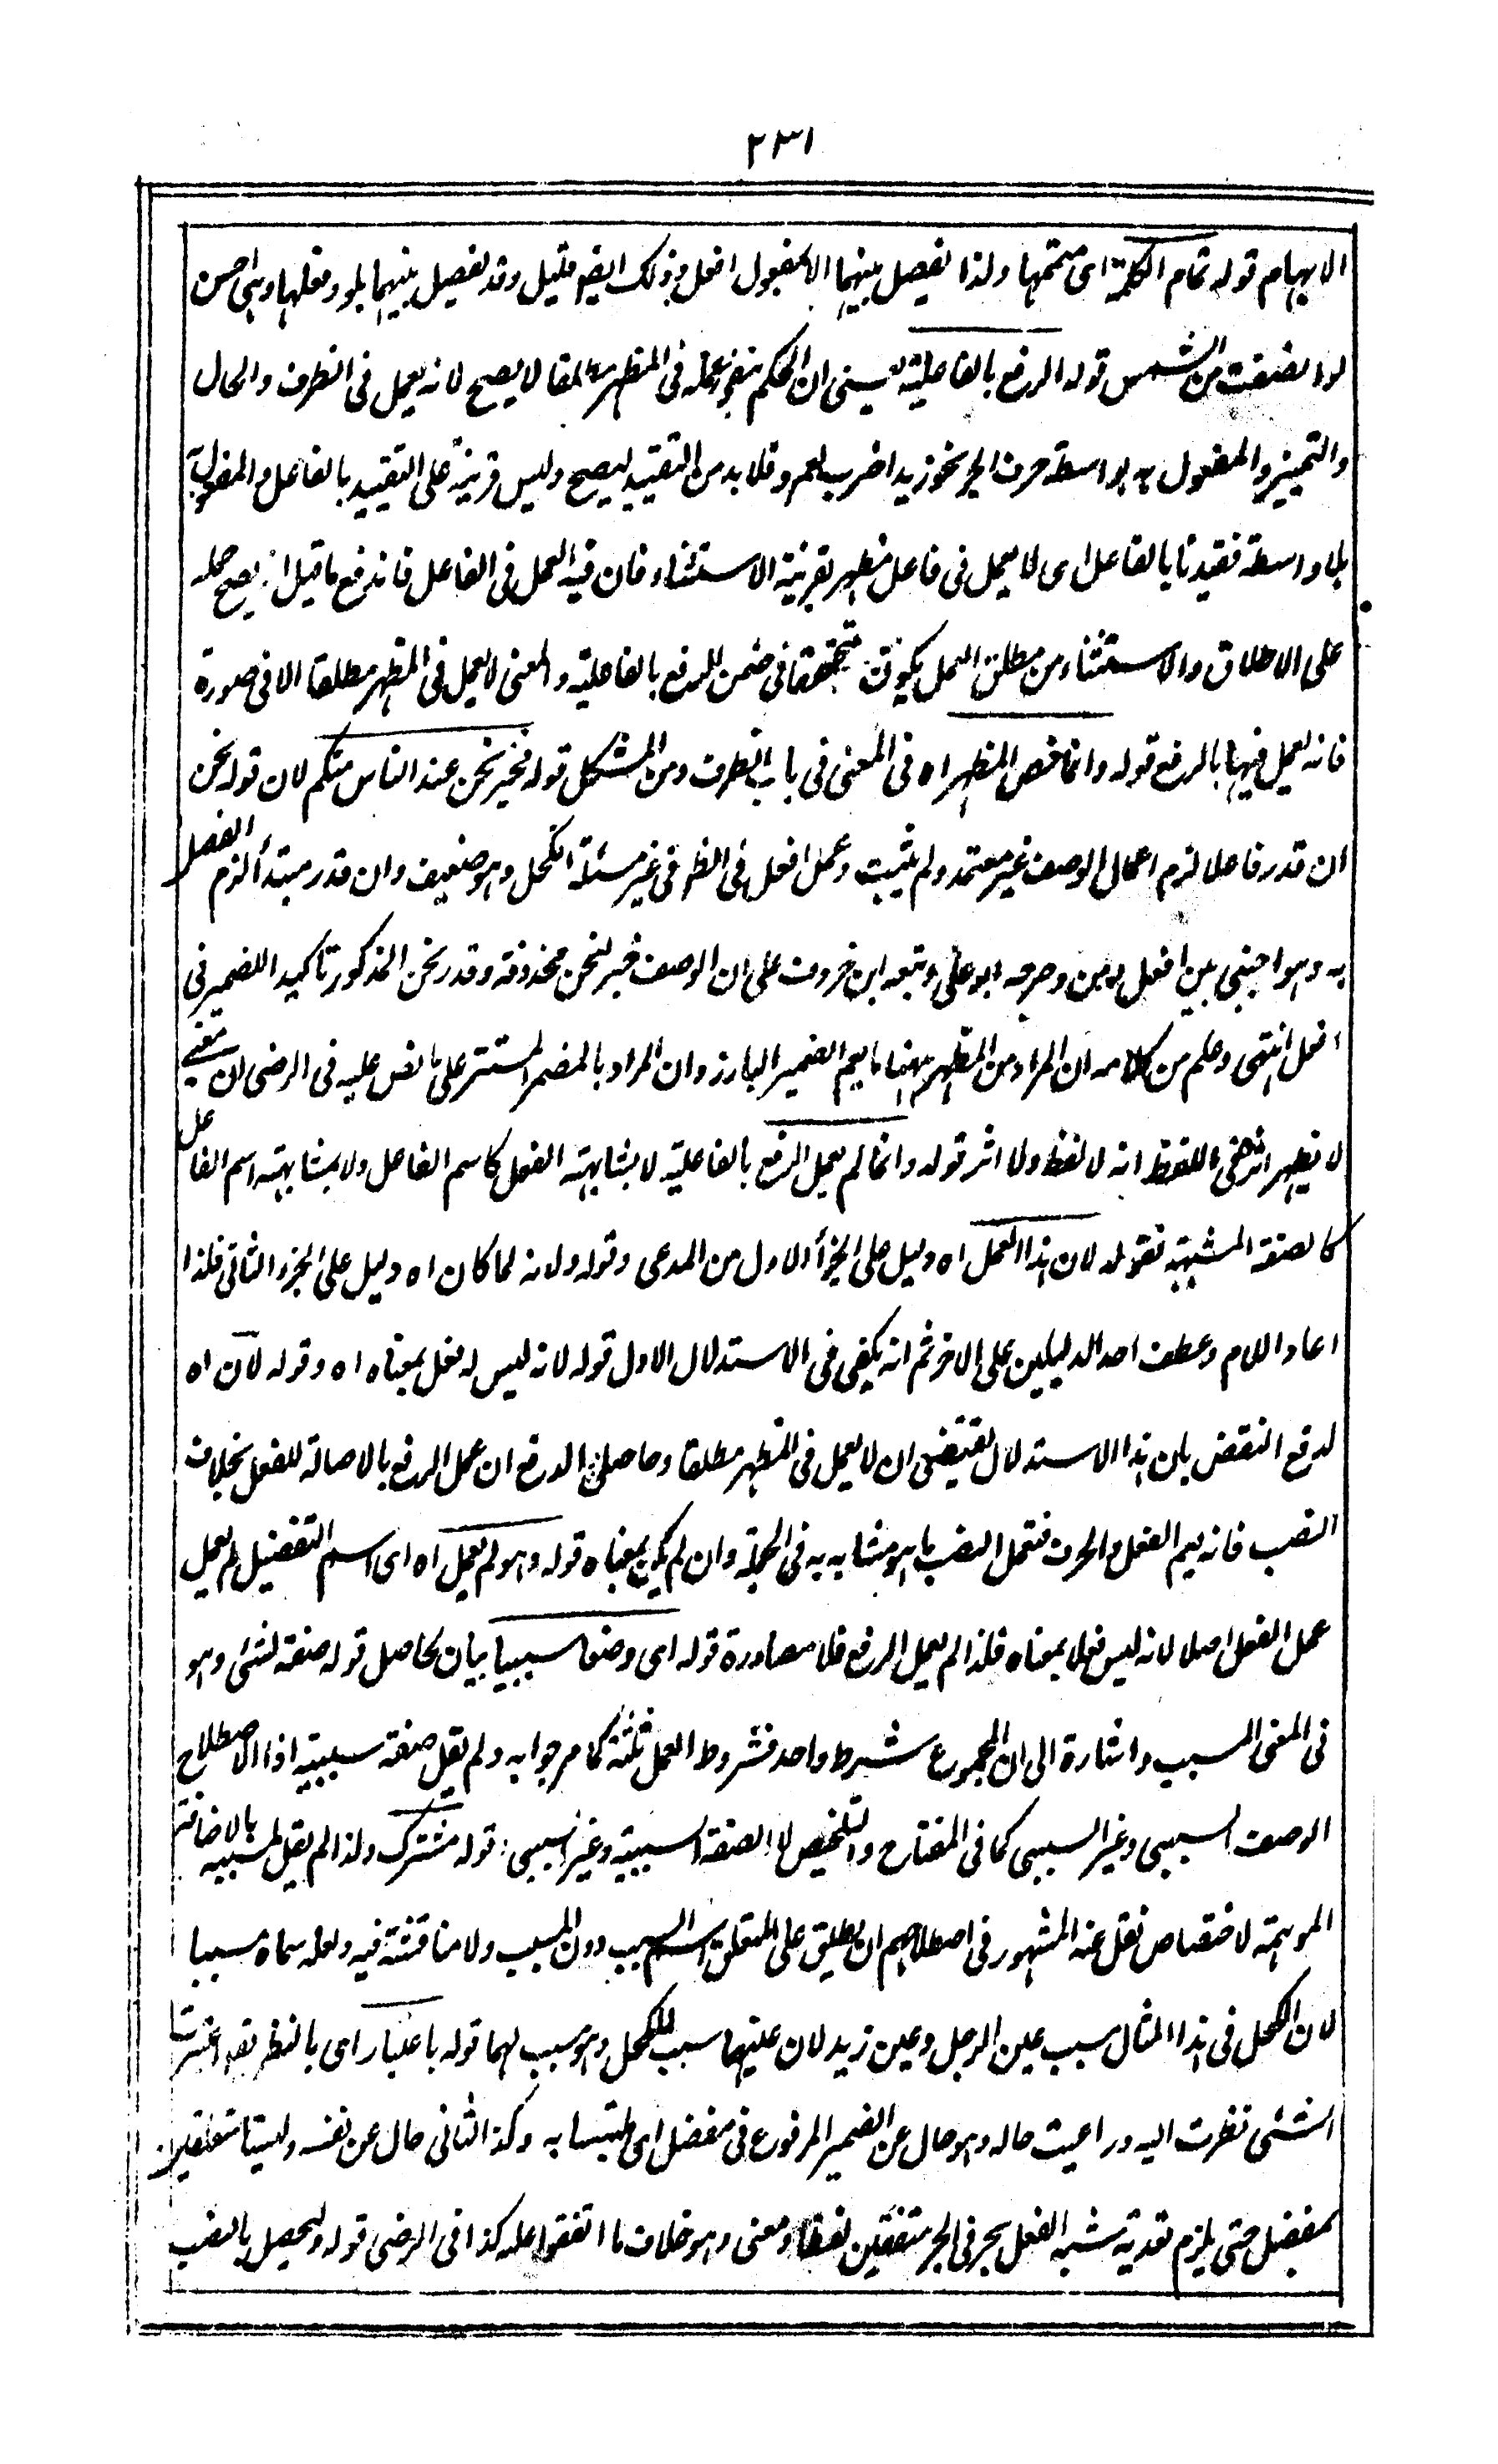 ٢٣١
الابهام قوله تمام الكلمة اى متممها ولذا لا يفصل بينهما الا بمعمول افعل وذلك ايضا قليل وقد يفصل بينهما بلو وفعلها وهى احسن
لو انصفت من الشمس قوله الرفع بالفاعلية يعنى ان الحكم بنفى عمله فى المظهر مطلقا لا يصح لانه يعمل فى الظرف والحال
والتمييز والمفعول به بواسطة حرف الجر نحو زيد اضرب لعمرو فلا بد من التقييد ليصح وليس قرينة على التقييد بالفاعل والمفعول به
بلا واسطة فقيدنا بالفاعل اى لا يعمل فى فاعل مظهر بقرينة الاستثناء فان فيه العمل فى الفاعل فاندفع ما قيل انه يصح حمله
على الاطلاق والاستثناء من مطلق العمل يكون متحققا فى ضمن الرفع بالفاعلية والمعنى لا يعمل فى المظهر مطلقا الا فى صورة
فانه يعمل فيها بالرفع قوله وانما خص المظهر اه فى المغنى فى باب الظرف ومن المشكل قوله فخير نحن عند الناس منكم لان قوله نحن
ان قدر فاعلا لزم اعمال الوصف غير معتمد ولم يثبت وعمل افعل فى الظاهر فى غير مسئلة الكحل وهو ضعيف وان قدر مبتدأ لزم الفصل
به وهو اجنبى بين افعل ومن وخرجه ابو على وتبعه ابن خروف على ان الوصف خبر لنحن محذوفة وقدر نحن المذكور تاكيدا للضمير فى
افعل انتهى وعلم من كلامه ان المراد من المظهر ههنا ما يعم الضمير البارز وان المراد بالمضمر المستتر على ما نص عليه فى الرضى ان معنى
لا يظهر اثره فى اللفظ انه لا لفظ ولا اثر قوله وانما لم يعمل الرفع بالفاعلية لا بمشابهة الفعل كاسم الفاعل ولا بمشابهة اسم الفاعل
كالصفة المشبهة فقوله لان هذا العمل اه دليل على الجزأ الاول من المدعى وقوله ولانه لما كان اه دليل على الجزء الثانى فلذا
اعاد اللام وعطف احد الدليلين على الاخر ثم انه يكفى فى الاستدلال الاول قوله لانه ليس له فعل بمعناه اه وقوله لان اه
لدفع النقض بان هذا الاستدلال يقتضى ان لا يعمل فى المظهر مطلقا وحاصل الدفع ان عمل الرفع بالاصالة للفعل بخلاف
النصب فانه يعم الفعل والحرف فتحمل النصب ما هو مشابه به فى الجملة وان لم يكن بمعناه قوله وهو لم يعمل اه اى اسم التفضيل لم يعمل
عمل الفعل اصلا لانه ليس فعلا بمعناه فلذا لم يعمل الرفع فلا مصادرة قوله اى وصفا سببيا بيان لحاصل قوله صفة لشئ وهو
فى المعنى المسبب واشارة الى ان المجموع شرط واحد فشروط العمل ثلثة كما مر جوابه ولم يقل صفة سببية اذ الاصطلاح
الوصف السببى وغير السببى كما فى المفتاح والتلخيص لا الصفة السببية وغير السببى قوله مشترك ولذا لم يقل لمسببه بالاضافة
الموهمة لاختصاص نقل عنه المشهور فى اصطلاحهم ان يطلق على المتعلق اسم السبب دون المسبب ولا مناقشة فيه ولعله سماه مسببا
لان الكحل فى هذا المثال سبب عين الرجل وعين زيد لان عليهما سبب للكحل وهو سبب لهما قوله باعتبار اى بالنظر يقال اعتبرت
الشئ نظرت اليه وراعيت حاله وهو حال عن الضمير المرفوع فى مفضل اى ملتبسا به وكذا الثانى حال عن نفسه وليستا متعلقين
بمفضل حتى يلزم تعدية شبه الفعل بحرفى الجر متفقين لفظا ومعنى وهو خلاف ما اتفقوا عليه كذا فى الرضى قوله وليحصل بالنصب